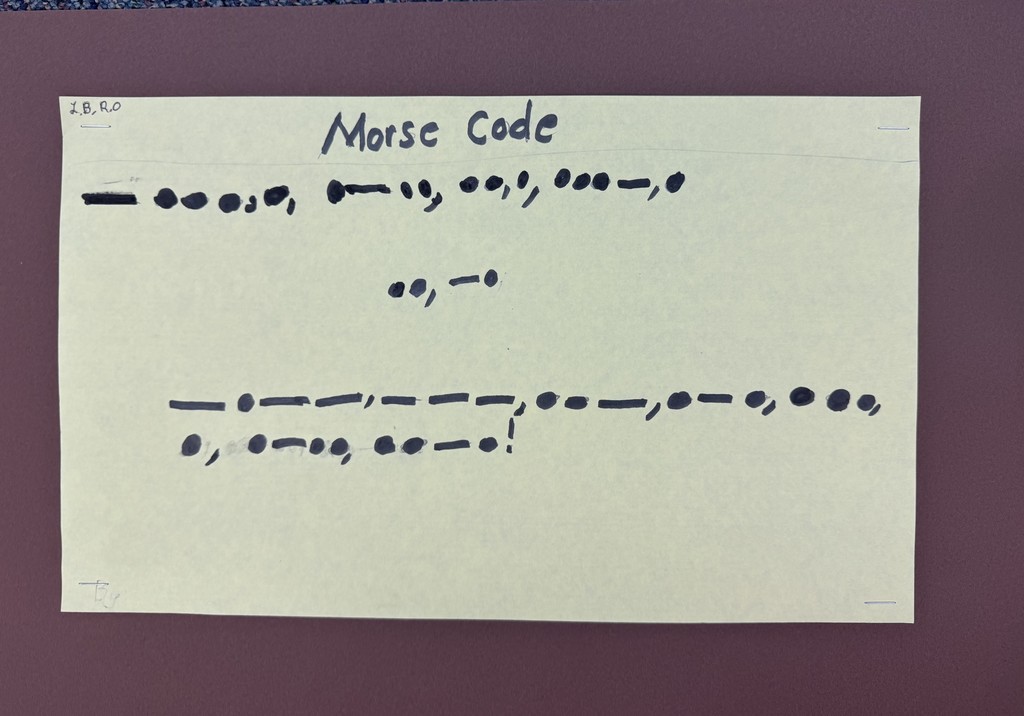 L.B, R.O
Morse Code
— • • • , • , • — • • , • • , • , • • • — , •
• • , — •
— • — — , — — — , • • — , • — • , • • • ,
• , • — • • , • • — • !
By